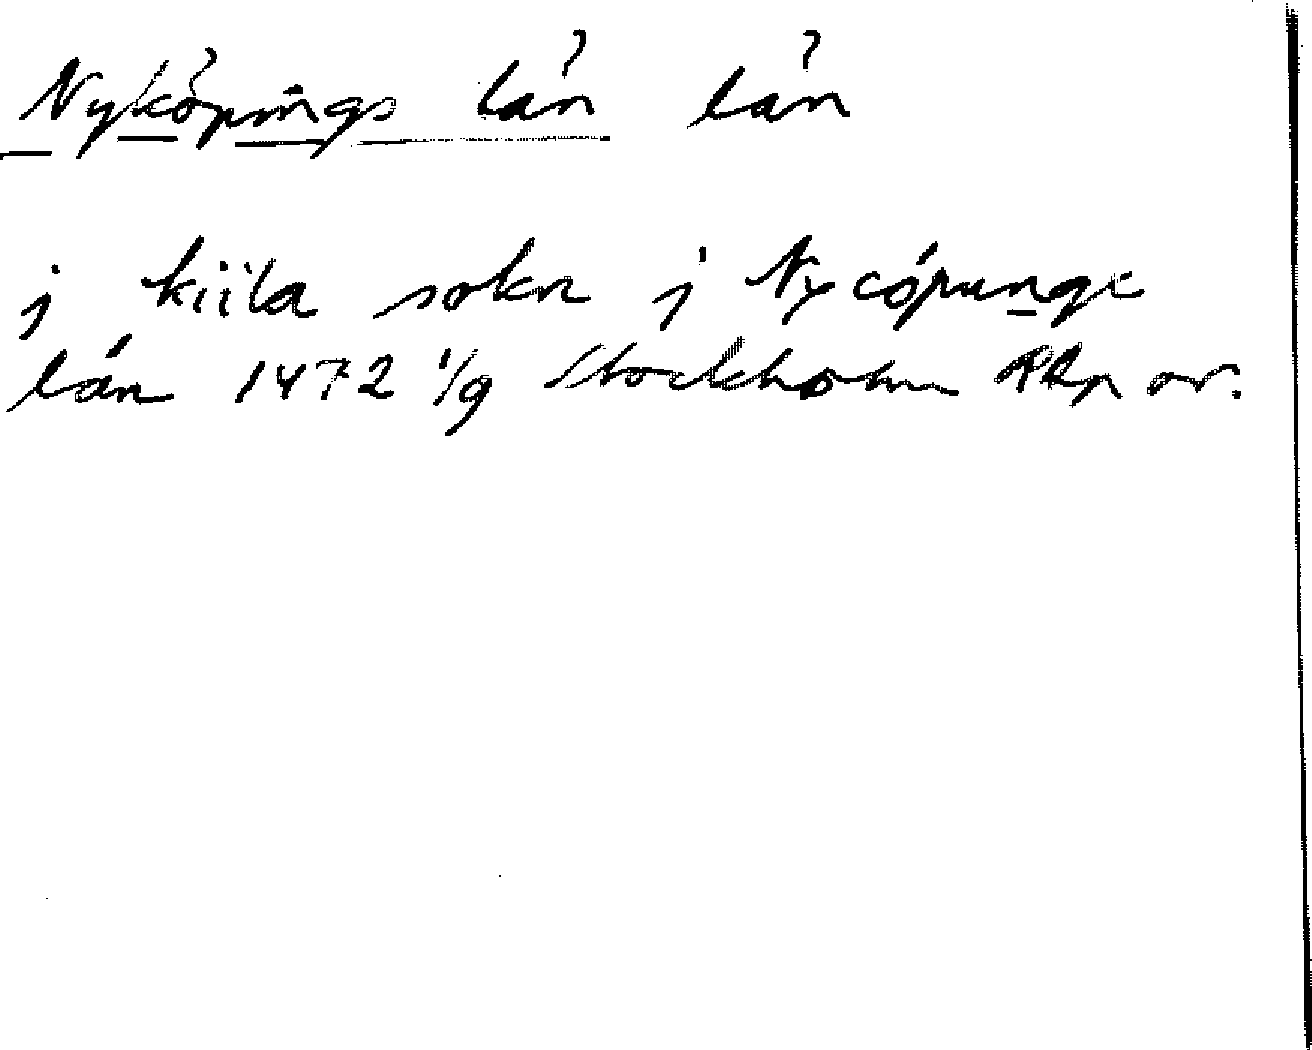 Nyköpings län län
j kiila sokn j Nycópunge
lán 1472 1/9 Stockholm RAp or.